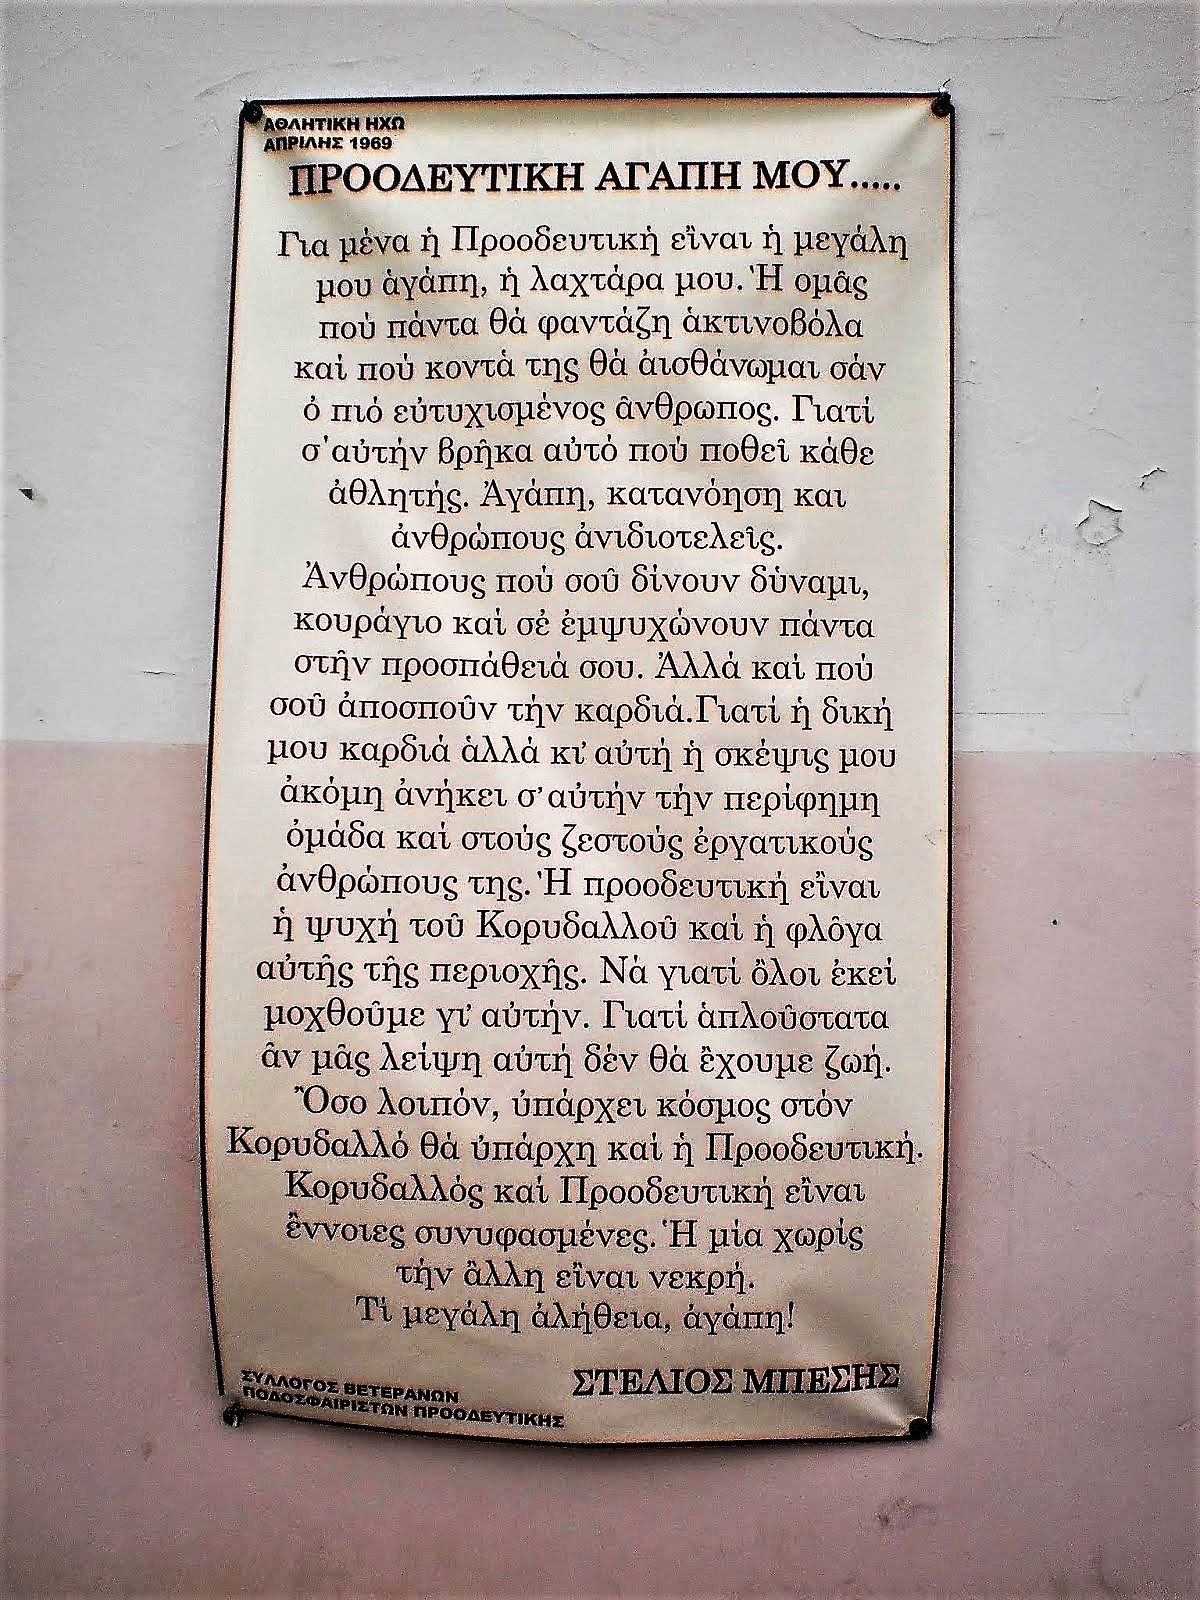 ΑΘΛΗΤΙΚΗ ΗΧΩ
ΑΠΡΙΛΗΣ 1969
ΠΡΟΟΔΕΥΤΙΚΗ ΑΓΑΠΗ ΜΟΥ.....
Για μένα ἡ Προοδευτική εἶναι ἡ μεγάλη
μου ἀγάπη, ἡ λαχτάρα μου. Ἡ ομᾶς
πού πάντα θά φαντάζη ἀκτινοβόλα
καί πού κοντά της θά ἀισθάνωμαι σάν
ὁ πιό εὐτυχισμένος ἄνθρωπος. Γιατί
σ'αὐτήν βρῆκα αὐτό πού ποθεῖ κάθε
ἀθλητής. Ἀγάπη, κατανόηση και
ἀνθρώπους ἀνιδιοτελεῖς.
Ἀνθρώπους πού σοῦ δίνουν δύναμι,
κουράγιο καί σέ ἐμψυχώνουν πάντα
στῆν προσπάθειά σου. Ἀλλά καί πού
σοῦ ἀποσποῦν τήν καρδιά.Γιατί ἡ δική
μου καρδιά ἀλλά κι' αὐτή ἡ σκέψις μου
ἀκόμη ἀνήκει σ'αὐτήν τήν περίφημη
ὁμάδα καί στούς ζεστούς ἐργατικούς
ἀνθρώπους της. Ἡ προοδευτική εἶναι
ἡ ψυχή τοῦ Κορυδαλλοῦ καί ἡ φλόγα
αὐτῆς τῆς περιοχῆς. Νά γιατί ὅλοι ἐκεί
μοχθοῦμε γι' αὐτήν. Γιατί ἁπλοῦστατα
ἄν μᾶς λείψη αὐτή δέν θά ἔχουμε ζωή.
Ὅσο λοιπόν, ὑπάρχει κόσμος στόν
Κορυδαλλό θά ὑπάρχη καί ἡ Προοδευτική.
Κορυδαλλός καί Προοδευτική εἶναι
ἔννοιες συνυφασμένες. Ἡ μία χωρίς
τήν ἄλλη εἶναι νεκρή.
Τί μεγάλη ἀλήθεια, ἀγάπη!
ΣΤΕΛΙΟΣ ΜΠΕΣΗΣ
ΣΥΛΛΟΓΟΣ ΒΕΤΕΡΑΝΩΝ
ΠΟΔΟΣΦΑΙΡΙΣΤΩΝ ΠΡΟΟΔΕΥΤΙΚΗΣ